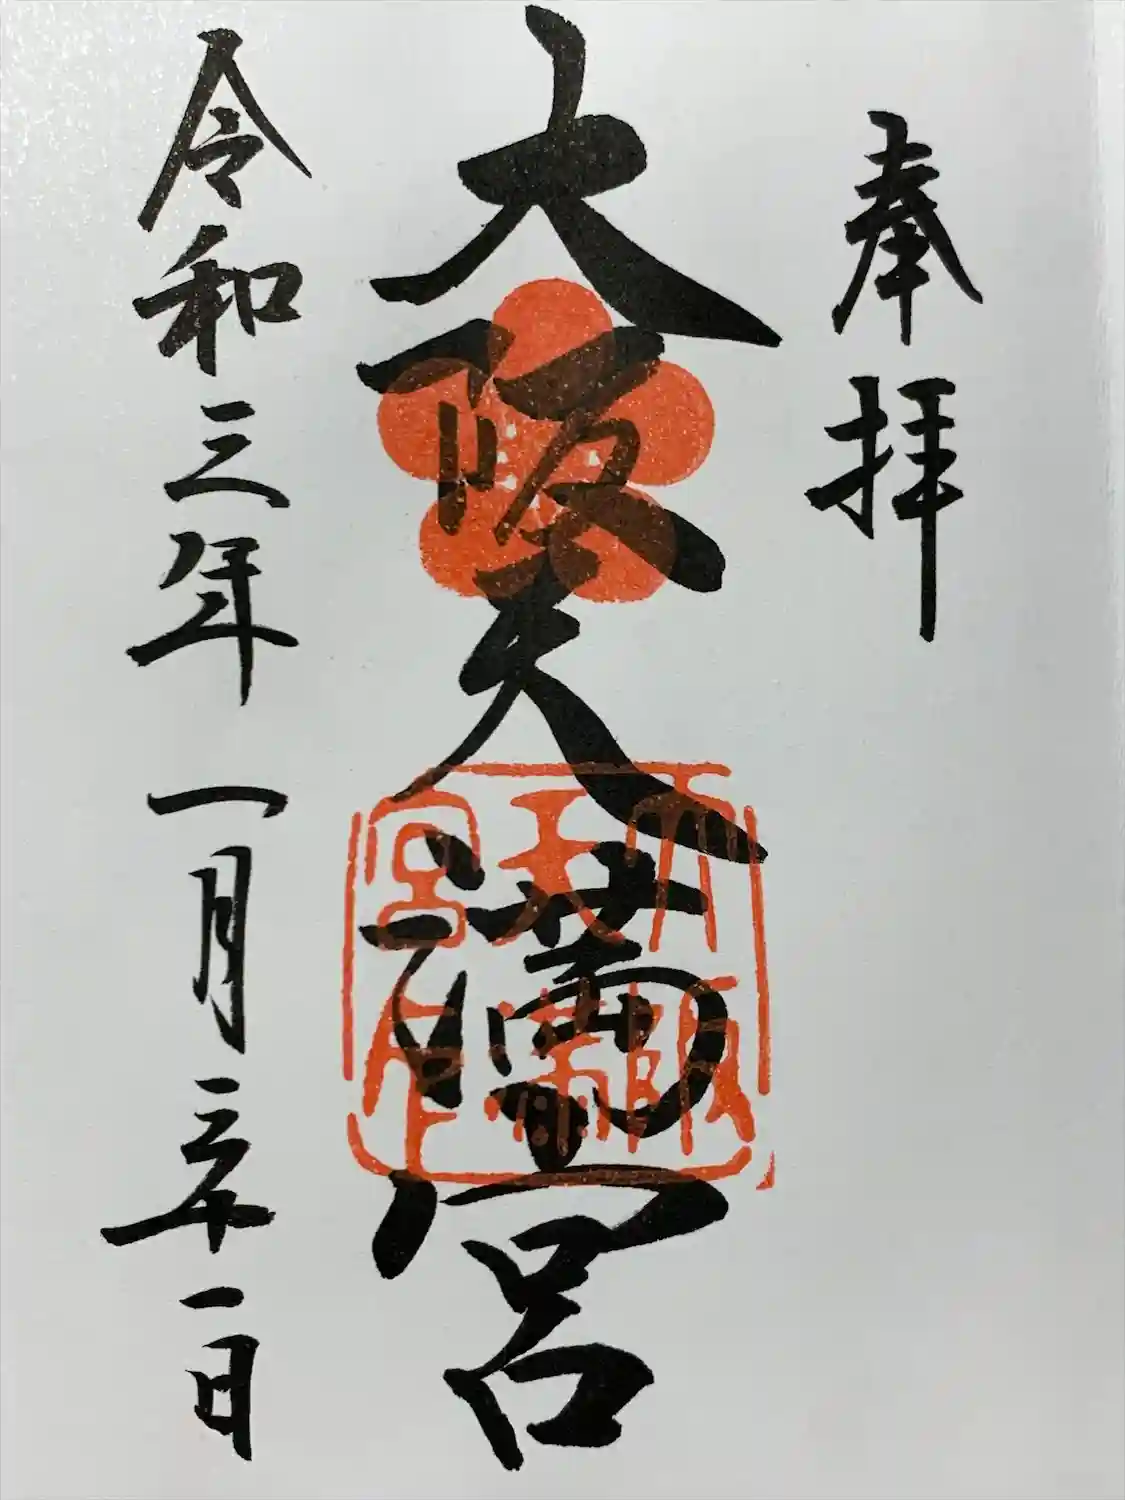 奉拝
大阪天満宮
大阪天満宮
令和三年一月三十一日